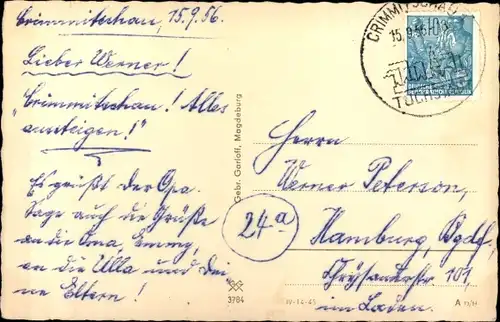 Crimmitschau, 15.9.56.
Lieber Werner!
"Crimmitschau! Alles
aussteigen!"
Es grüßt der Opa.
Sage auch die Grüße
an die Oma, Emmy,
an die Ulla und dei-
ne Eltern!
Gebr. Garloff, Magdeburg
3784
CRIMMITSCHAU
15.9.56
Herrn
Werner Peterson,
24a
Hamburg, Bgdf,
Chrysanderstr 101,
im Laden.
IV-14-45
A